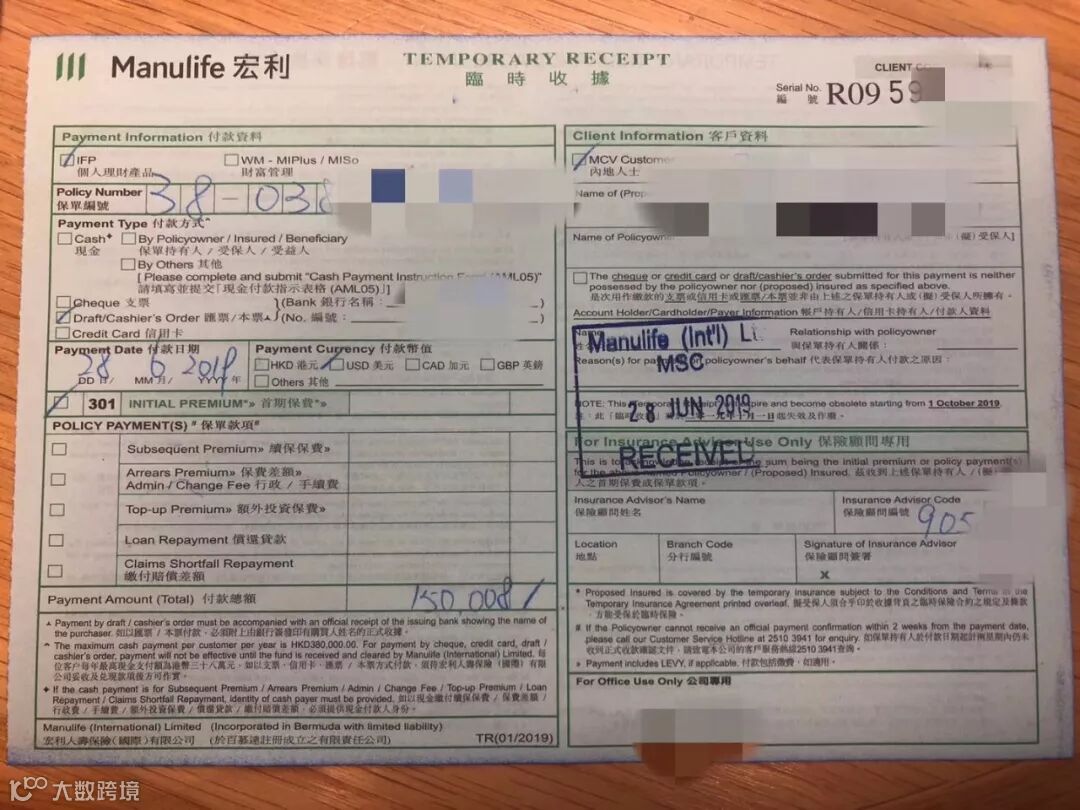 Manulife 宏利
TEMPORARY RECEIPT
臨時收據
CLIENT
Serial No.
編 號
R09 59
Payment Information 付款資料
IFP
個人理財產品
WM - MIPlus / MISo
財富管理
Policy Number
保單編號
38-038
Payment Type 付款方式^
Cash✦
現金
By Policyowner / Insured / Beneficiary
保單持有人 / 受保人 / 受益人
By Others 其他
[ Please complete and submit "Cash Payment Instruction Form (AML05)"
請填寫並提交「現金付款指示表格 (AML05)」]
Cheque 支票
Draft/Cashier's Order 匯票/本票▲
(Bank 銀行名稱 : )
(No. 編號 : )
Credit Card 信用卡
Payment Date 付款日期
28 6 2019
DD 日/ MM 月/ YYYY 年
Payment Currency 付款幣值
HKD 港元
USD 美元
CAD 加元
GBP 英鎊
Others 其他
301 INITIAL PREMIUM*» 首期保費*»
POLICY PAYMENT(S) # 保單款項#
Subsequent Premium» 續保保費»
Arrears Premium» 保費差額»
Admin / Change Fee 行政 / 手續費
Top-up Premium» 額外投資保費»
Loan Repayment 償還貸款
Claims Shortfall Repayment
繳付賠償差額
Payment Amount (Total) 付款總額
150,008/
▲ Payment by draft / cashier's order must be accompanied with an official receipt of the issuing bank showing the name of
the purchaser. 如以匯票 / 本票付款，必須附上由銀行簽發印有購買人姓名的正式收據。
^ The maximum cash payment per customer per year is HKD380,000.00. For payment by cheque, credit card, draft /
cashier's order, payment will not be effective until the fund is received and cleared by Manulife (International) Limited. 每
位客戶每年最高現金支付額為港幣三十八萬元。如以支票、信用卡、匯票 / 本票方式付款，須待宏利人壽保險（國際）有限
公司妥收及兌現款項後方可作實。
✦ If the cash payment is for Subsequent Premium / Arrears Premium / Admin / Change Fee / Top-up Premium / Loan
Repayment / Claims Shortfall Repayment, identity of cash payer must be provided. 如以現金繳付續保保費 / 保費差額 /
行政費 / 手續費 / 額外投資保費 / 償還貸款 / 繳付賠償差額，必須提供現金付款人身份。
Manulife (International) Limited (Incorporated in Bermuda with limited liability)
宏利人壽保險(國際)有限公司 (於百慕達註冊成立之有限責任公司)
TR(01/2019)
Client Information 客戶資料
MCV Customer
內地人士
Name of (Prop
Name of Policyowner
(擬)受保人]
The cheque or credit card or draft/cashier's order submitted for this payment is neither
possessed by the policyowner nor (proposed) insured as specified above.
是次用作繳款的支票或信用卡或匯票/本票並非由上述之保單持有人或(擬)受保人所擁有。
Account Holder/Cardholder/Payer Information 帳戶持有人/信用卡持有人/付款人資料
Name
姓
Relationship with policyowner
與保單持有人關係：
Reason(s) for payment on policyowner's behalf 代表保單持有人付款之原因：
Manulife (Int'l) Li
MSC
28 JUN 2019
RECEIVED
NOTE: This Temporary Receipt will expire and become obsolete starting from 1 October 2019.
For Insurance Advisor Use Only 保險顧問專用
Insurance Advisor's Name
保險顧問姓名
Insurance Advisor Code
保險顧問編號
905
Location
地點
Branch Code
分行編號
Signature of Insurance Advisor
保險顧問簽署
X
* Proposed Insured is covered by the temporary insurance subject to the Conditions and Terms
Temporary Insurance Agreement printed overleaf.
# If the Policyowner cannot receive an official payment confirmation within 2 weeks from the payment date,
please call our Customer Service Hotline at 2510 3941 for enquiry. 如保單持有人於付款日期起計兩星期內仍未
收到正式收款確認文件，請致電本公司的客戶服務熱線2510 3941查詢。
» Payment includes LEVY, if applicable. 付款包括徵費，如適用。
For Office Use Only 公司專用
大数跨境